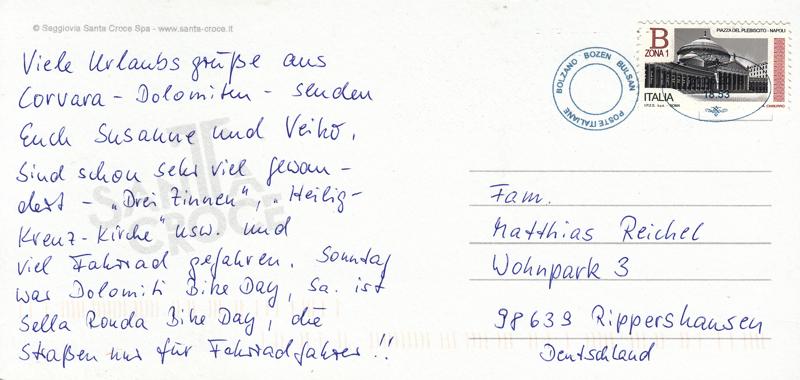 © Seggiovia Santa Croce Spa - www.santa-croce.it
Viele Urlaubsgrüße aus
Corvara - Dolomiten - senden
Euch Susanne und Veiko.
Sind schon sehr viel gewan-
dert - „Drei Zinnen", „Heilig-
Kreuz-Kirche" usw. und
viel Fahrrad gefahren. Sonntag
war Dolomiti Bike Day, Sa. ist
Sella Ronda Bike Day, die
Straßen nur für Fahrradfahrer!!
SANTA
CROCE
BOLZANO BOZEN BULSAN
POSTE ITALIANE
B
ZONA 1
PIAZZA DEL PLEBISCITO - NAPOLI
18.53
ITALIA
Fam.
Matthias Reichel
Wohnpark 3
98639 Rippershausen
Deutschland